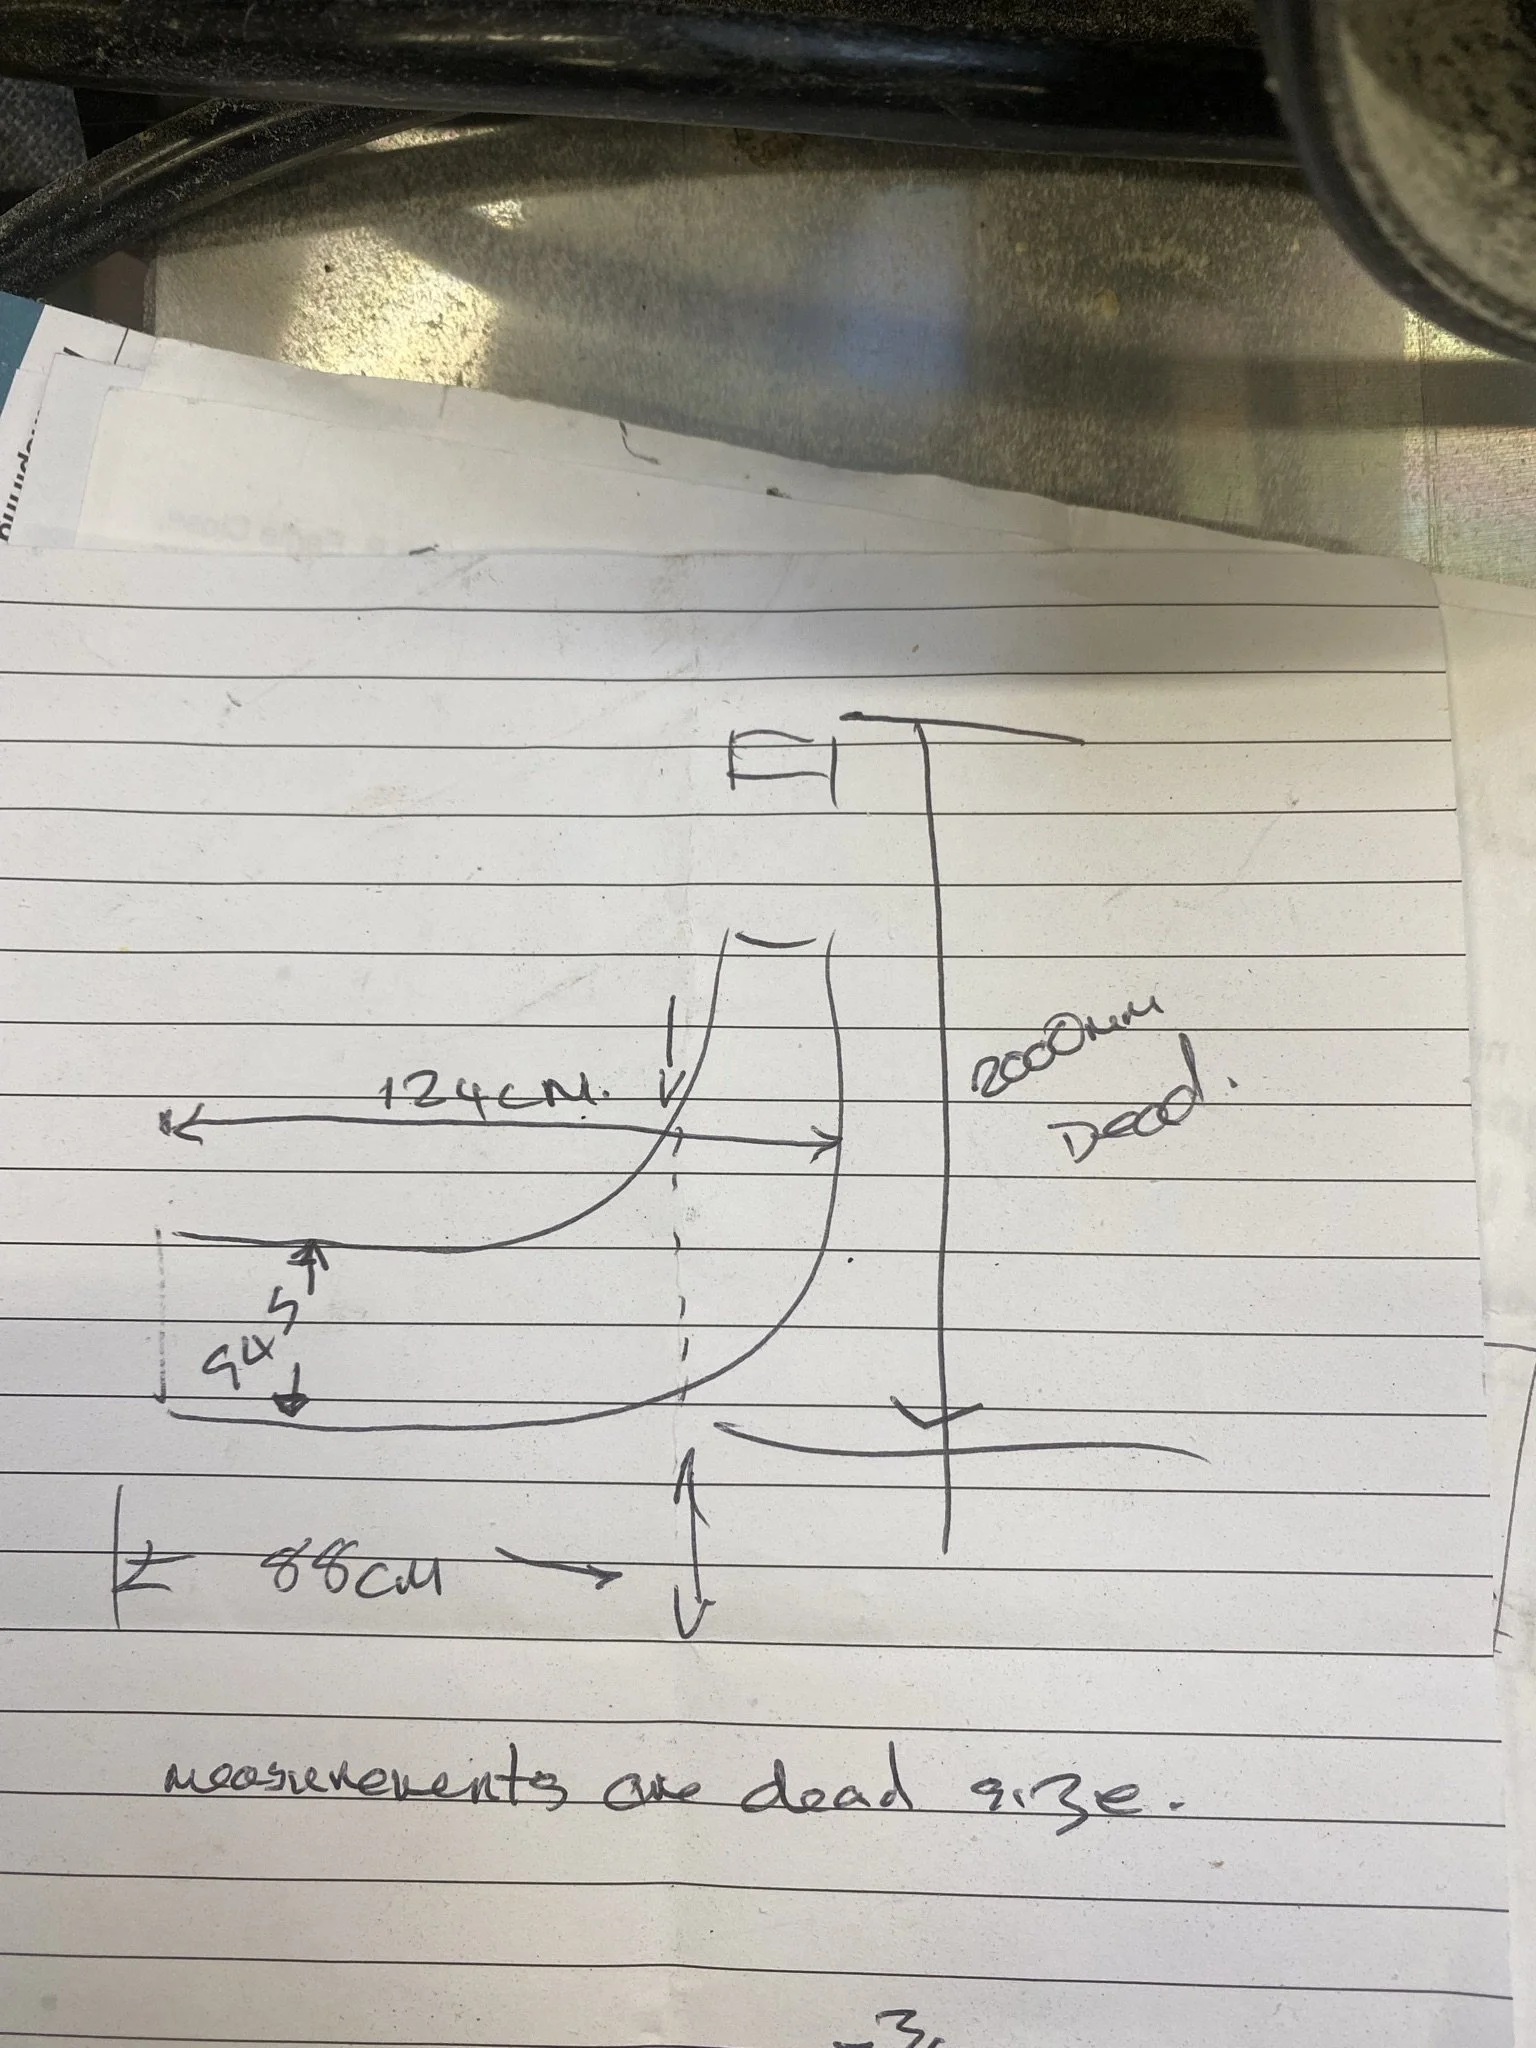 2000mm
Dead.
124cm.
945
88cm
measurements are dead size.
-3.